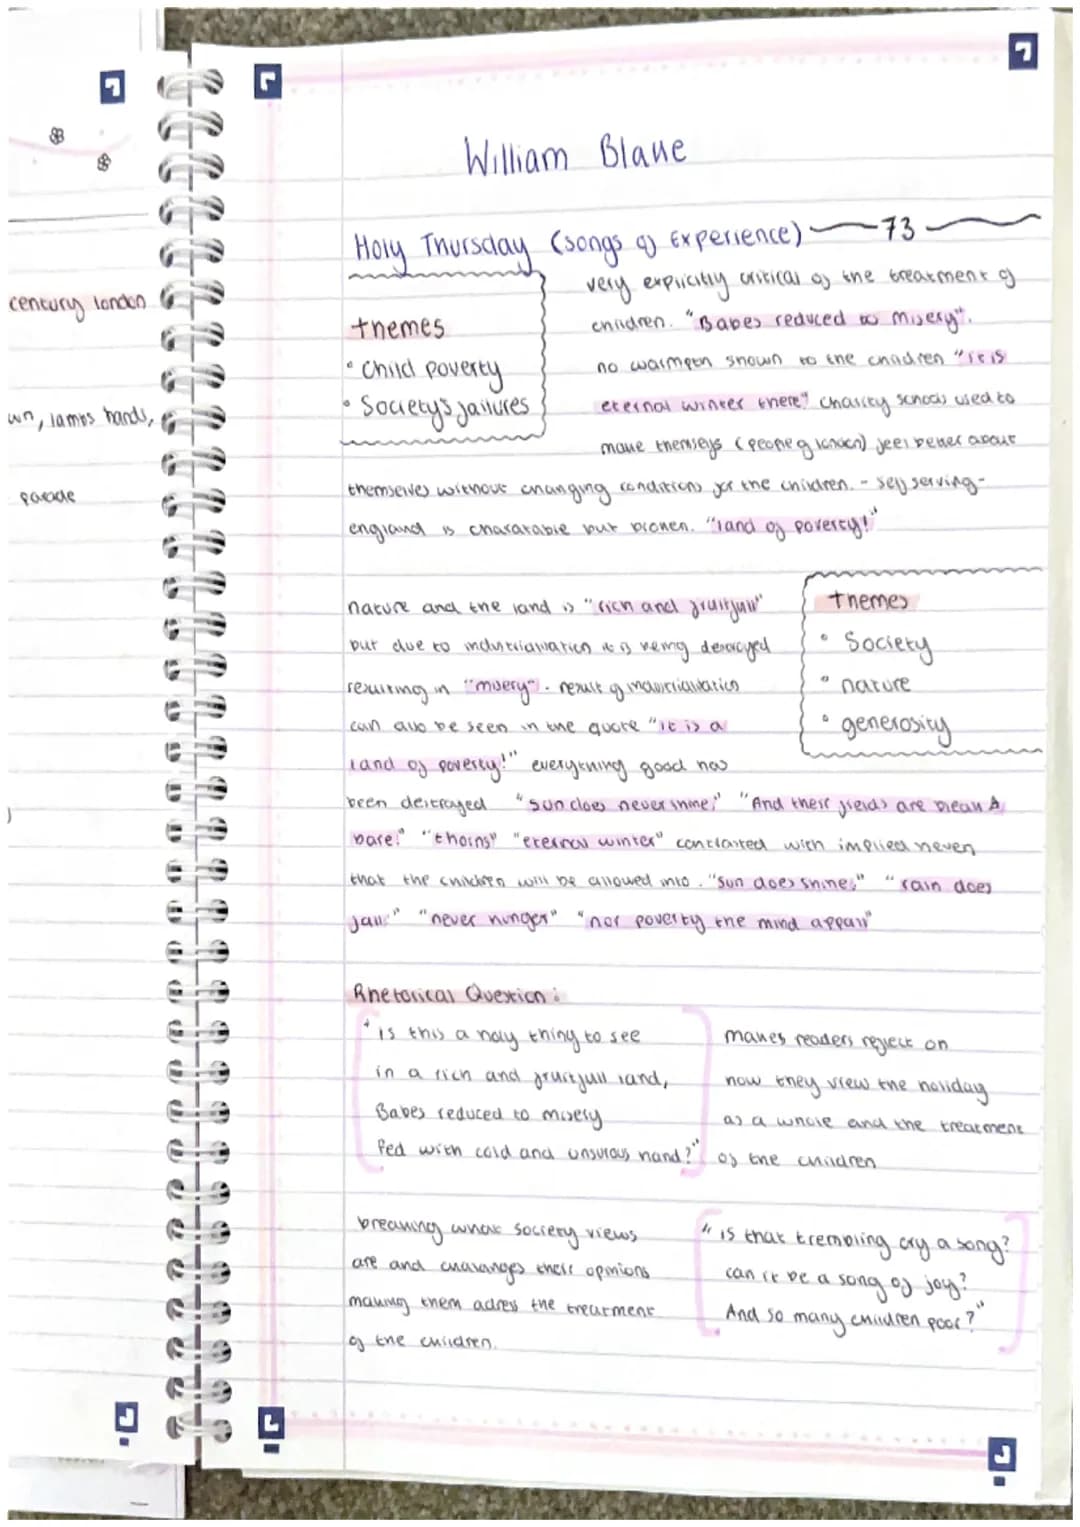 century london
lambs hands,
parade
William Blake
Holy Thursday (songs of Experience) 73
themes
• Child poverty
• Society's failures
very explicitly critical of the treatment of
children. "Babes reduced to misery".
no warmpth shown to the children "it is
eternal winter there!" charity schools used to
make themselfs (people of london) feel better about
themselves without changing conditions for the children. - self serving -
england is charatable but broken. "land of poverty!"
nature and the land is "rich and fruitfull"
but due to industrialisation it is being destroyed
resulting in "misery". result of industrialisation
can also be seen in the quote "it is a
land of poverty!" everything good has
been destroyed "sun does never shine," "And their fields are bleak &
bare!" "thorns" "eternal winter" contrasted with implied heven
that the children will be allowed into. "sun does shine," "rain does
fall:" "never hunger" "nor poverty the mind appall"
themes
• Society
• nature
• generosity
Rhetorical Question:
"is this a holy thing to see
in a rich and fruitfull land,
Babes reduced to misery
Fed with cold and usurous hand?"
makes readers reflect on
how they view the holiday
as a whole and the treatment
of the children
breaking what society views
are and challanges their opinions
making them adress the treatment
of the children.
"is that trembling cry a song?
can it be a song of joy?
And so many children poor?"